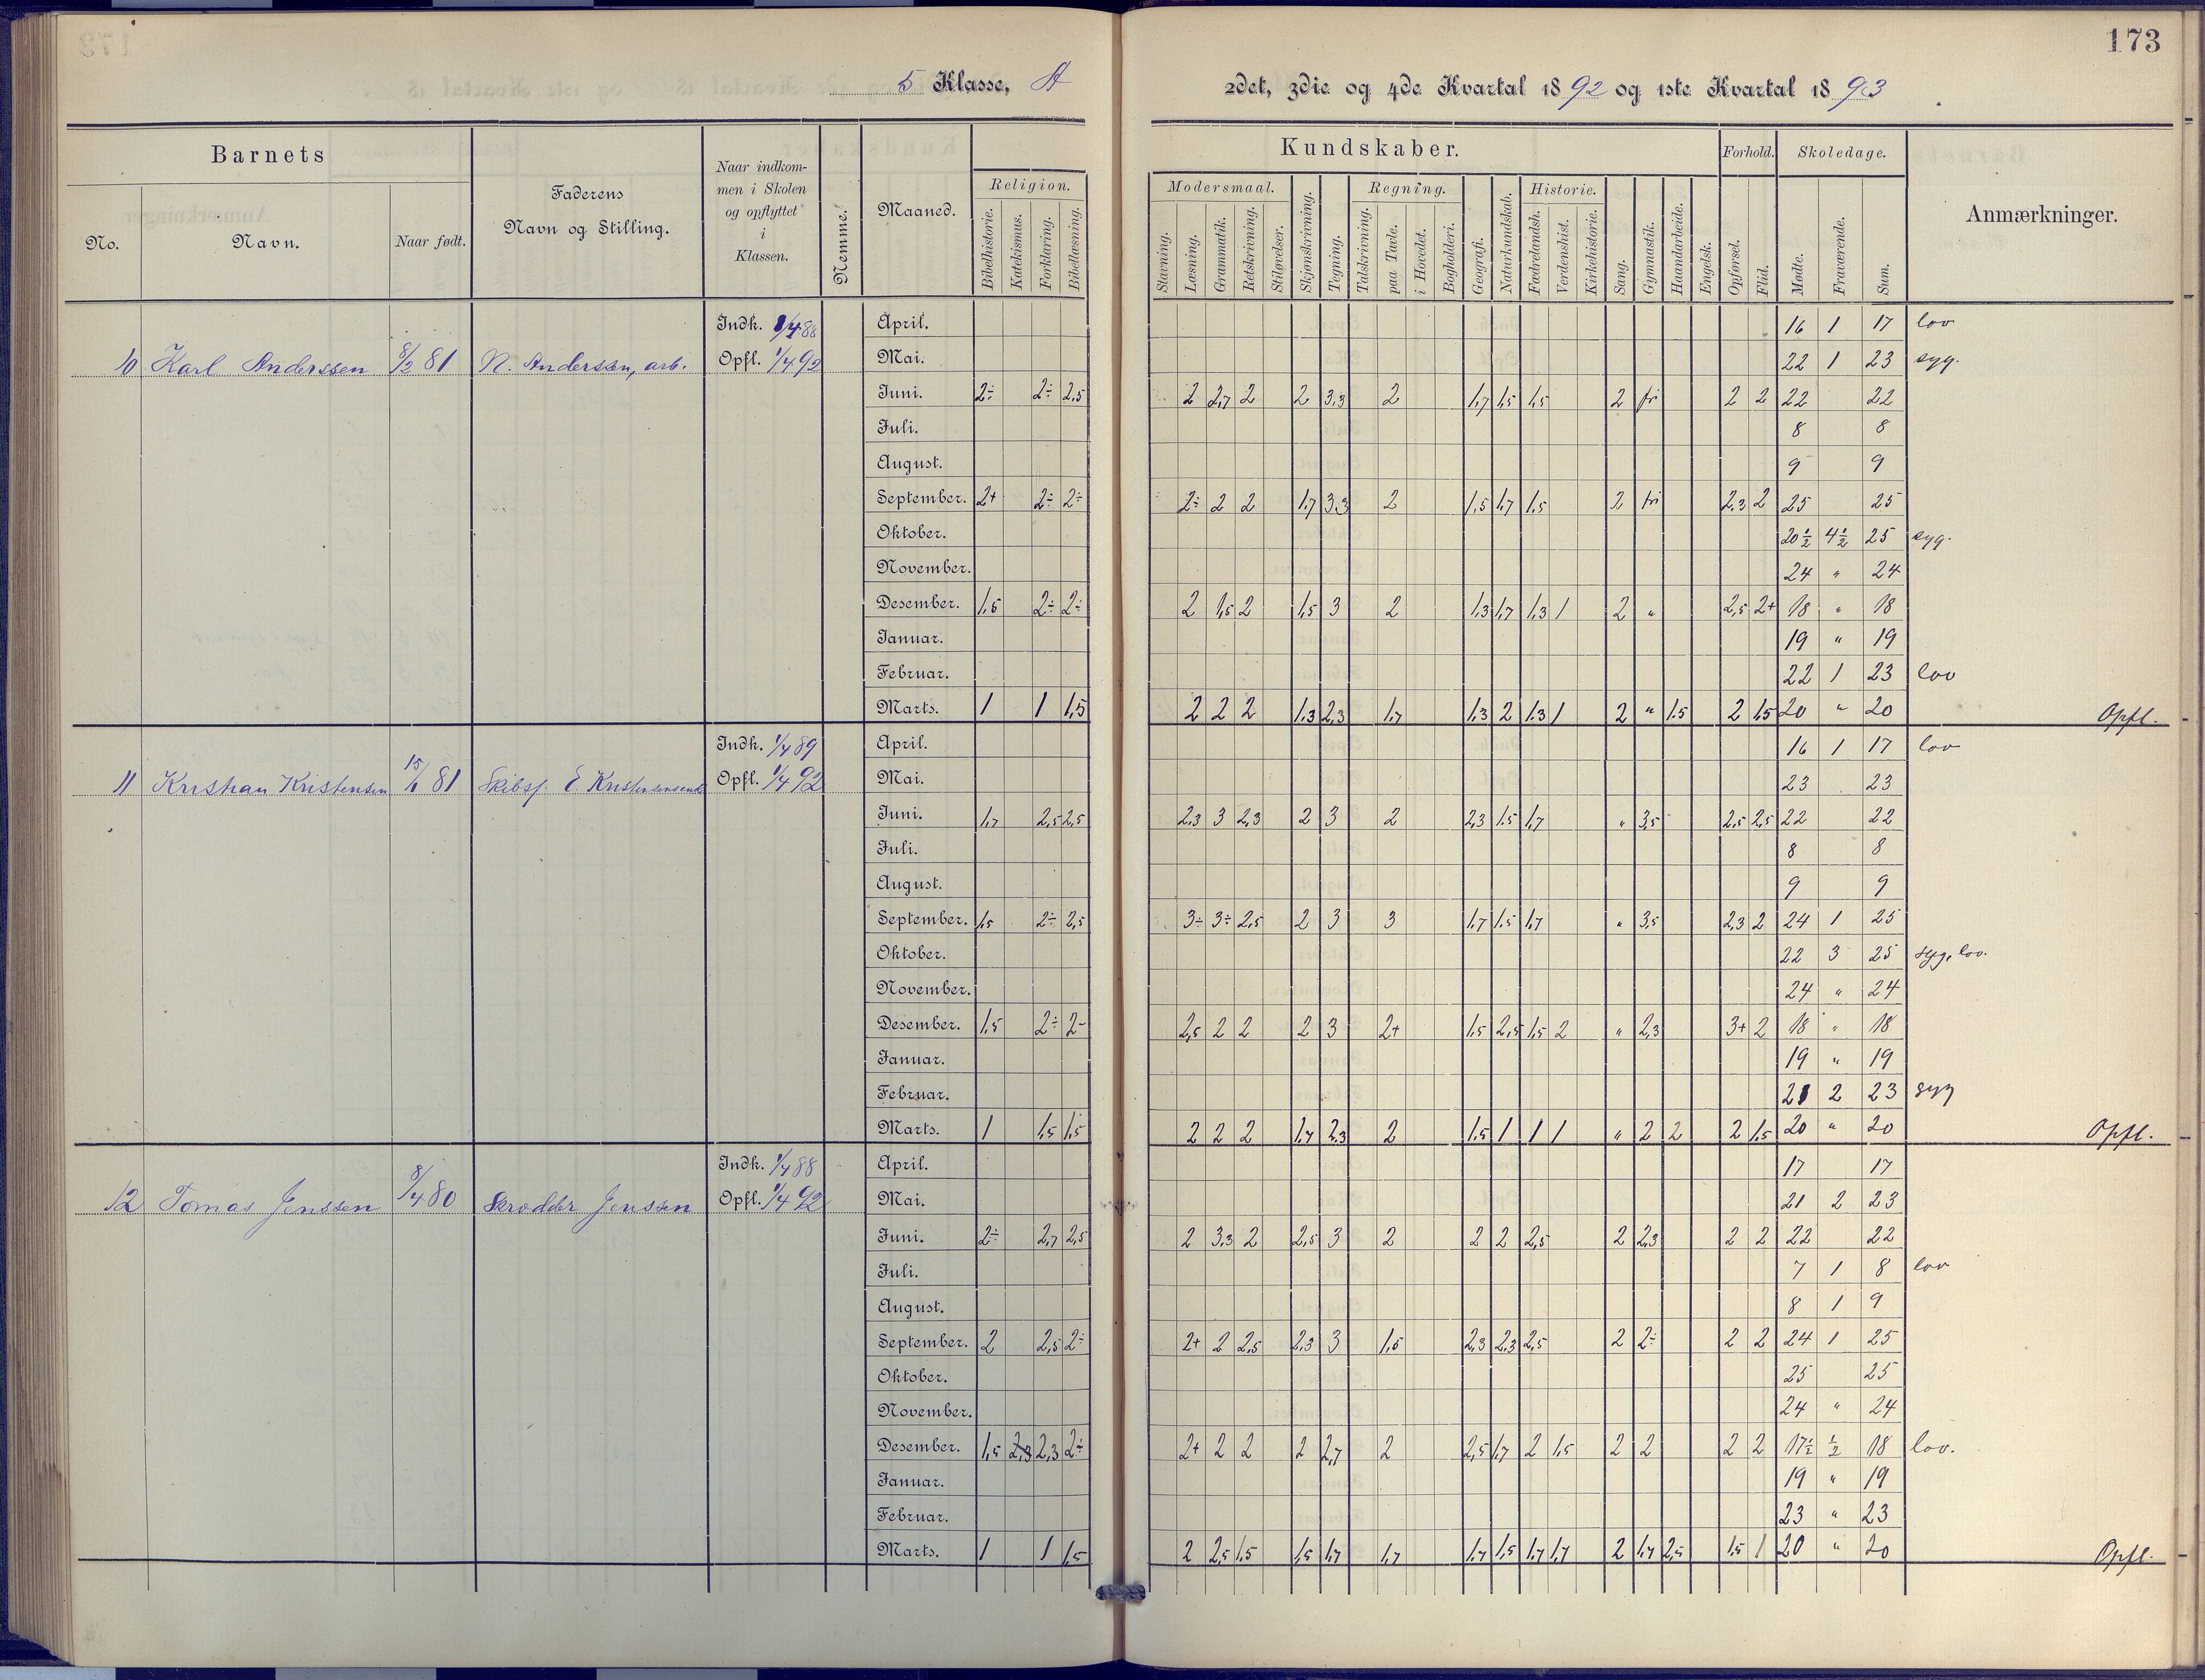 173
5 Klasse, A
2det, 3die og 4de Kvartal 1892 og 1ste Kvartal 1893
Barnets
No. Navn. Naar født.
Faderens Navn og Stilling.
Naar indkommen i Skolen og opflyttet i Klassen.
Nemme.
Maaned.
Kundskaber.
Religion.
Bibelhistorie. Katekismus. Forklaring. Bibellæsning.
Modersmaal.
Stavning. Læsning. Grammatik. Retskrivning. Stiløvelser.
Skjønskrivning. Tegning.
Regning.
Talskrivning. paa Tavle. i Hovedet. Bogholderi.
Geografi. Naturkundskab.
Historie.
Fædrelandsh. Verdenshist. Kirkehistorie.
Sang. Gymnastik. Haandarbeide. Engelsk.
Forhold.
Opførsel. Flid.
Skoledage.
Mødte. Fraværende. Sum.
Anmærkninger.
10 Karl Anderssen 8/2 81 N. Anderssen, arb.
Indk. 1/4 88
Opfl. 1/4 92
April. 16 1 17 lov
Mai. 22 1 23 syg.
Juni. 2÷ 2÷ 2,5 2 2,7 2 2 3,3 2 1,7 1,5 1,5 2 fri 2 2 22 22
Juli. 8 8
August. 9 9
September. 2+ 2÷ 2÷ 2÷ 2 2 1,7 3,3 2 1,5 1,7 1,5 2 fri 2,3 2 25 25
Oktober. 20½ 4½ 25 syg.
November. 24 " 24
Desember. 1,5 2÷ 2÷ 2 1,5 2 1,5 3 2 1,3 1,7 1,3 1 2 " 2,5 2+ 18 " 18
Januar. 19 " 19
Februar. 22 1 23 lov
Marts. 1 1 1,5 2 2 2 1,3 2,3 1,7 1,3 2 1,3 1 2 " 1,5 2 1,5 20 " 20 Opfl.
11 Kristian Kristensen 15/6 81 Skibsf. E. Kristensen
Indk. 1/4 89
Opfl. 1/4 92
April. 16 1 17 lov
Mai. 23 23
Juni. 1,7 2,5 2,5 2,3 3 2,3 2 3 2 2,3 1,5 1,7 " 3,5 2,5 2,5 22 22
Juli. 8 8
August. 9 9
September. 1,5 2÷ 2,5 3÷ 3÷ 2,5 2 3 3 1,7 1,5 1,7 " 3,5 2,3 2 24 1 25
Oktober. 22 3 25 syg, lov.
November. 24 " 24
Desember. 1,5 2÷ 2- 2,5 2 2 2 3 2+ 1,5 2,5 1,5 2 " 2,3 3+ 2 18 " 18
Januar. 19 " 19
Februar. 21 2 23 syg
Marts. 1 1,5 1,5 2 2 2 1,7 2,3 2 1,5 1 1 1 " 2 2 2 1,5 20 " 20 Opfl.
12 Tomas Jenssen 8/4 80 Skrædder Jenssen
Indk. 1/4 88
Opfl. 1/4 92
April. 17 17
Mai. 21 2 23
Juni. 2÷ 2,7 2,5 2 3,3 2 2,5 3 2 2 2 2,5 2 2,3 2 2 22 22
Juli. 7 1 8 lov
August. 8 1 9
September. 2 2,5 2÷ 2+ 2 2,5 2,3 3 1,5 2,3 2,3 2,5 2 2÷ 2 2 24 1 25
Oktober. 25 25
November. 24 " 24
Desember. 1,5 2,3 2,3 2÷ 2+ 2 2 2 2,7 2 2,5 1,7 2 1,5 2 2 2 2 17½ ½ 18 lov.
Januar. 19 " 19
Februar. 23 " 23
Marts. 1 1 1,5 2 2,5 1,5 1,5 1,7 1,7 1,7 1,5 1,7 1,7 2 1,7 2,5 1,5 1 20 " 20 Opfl.